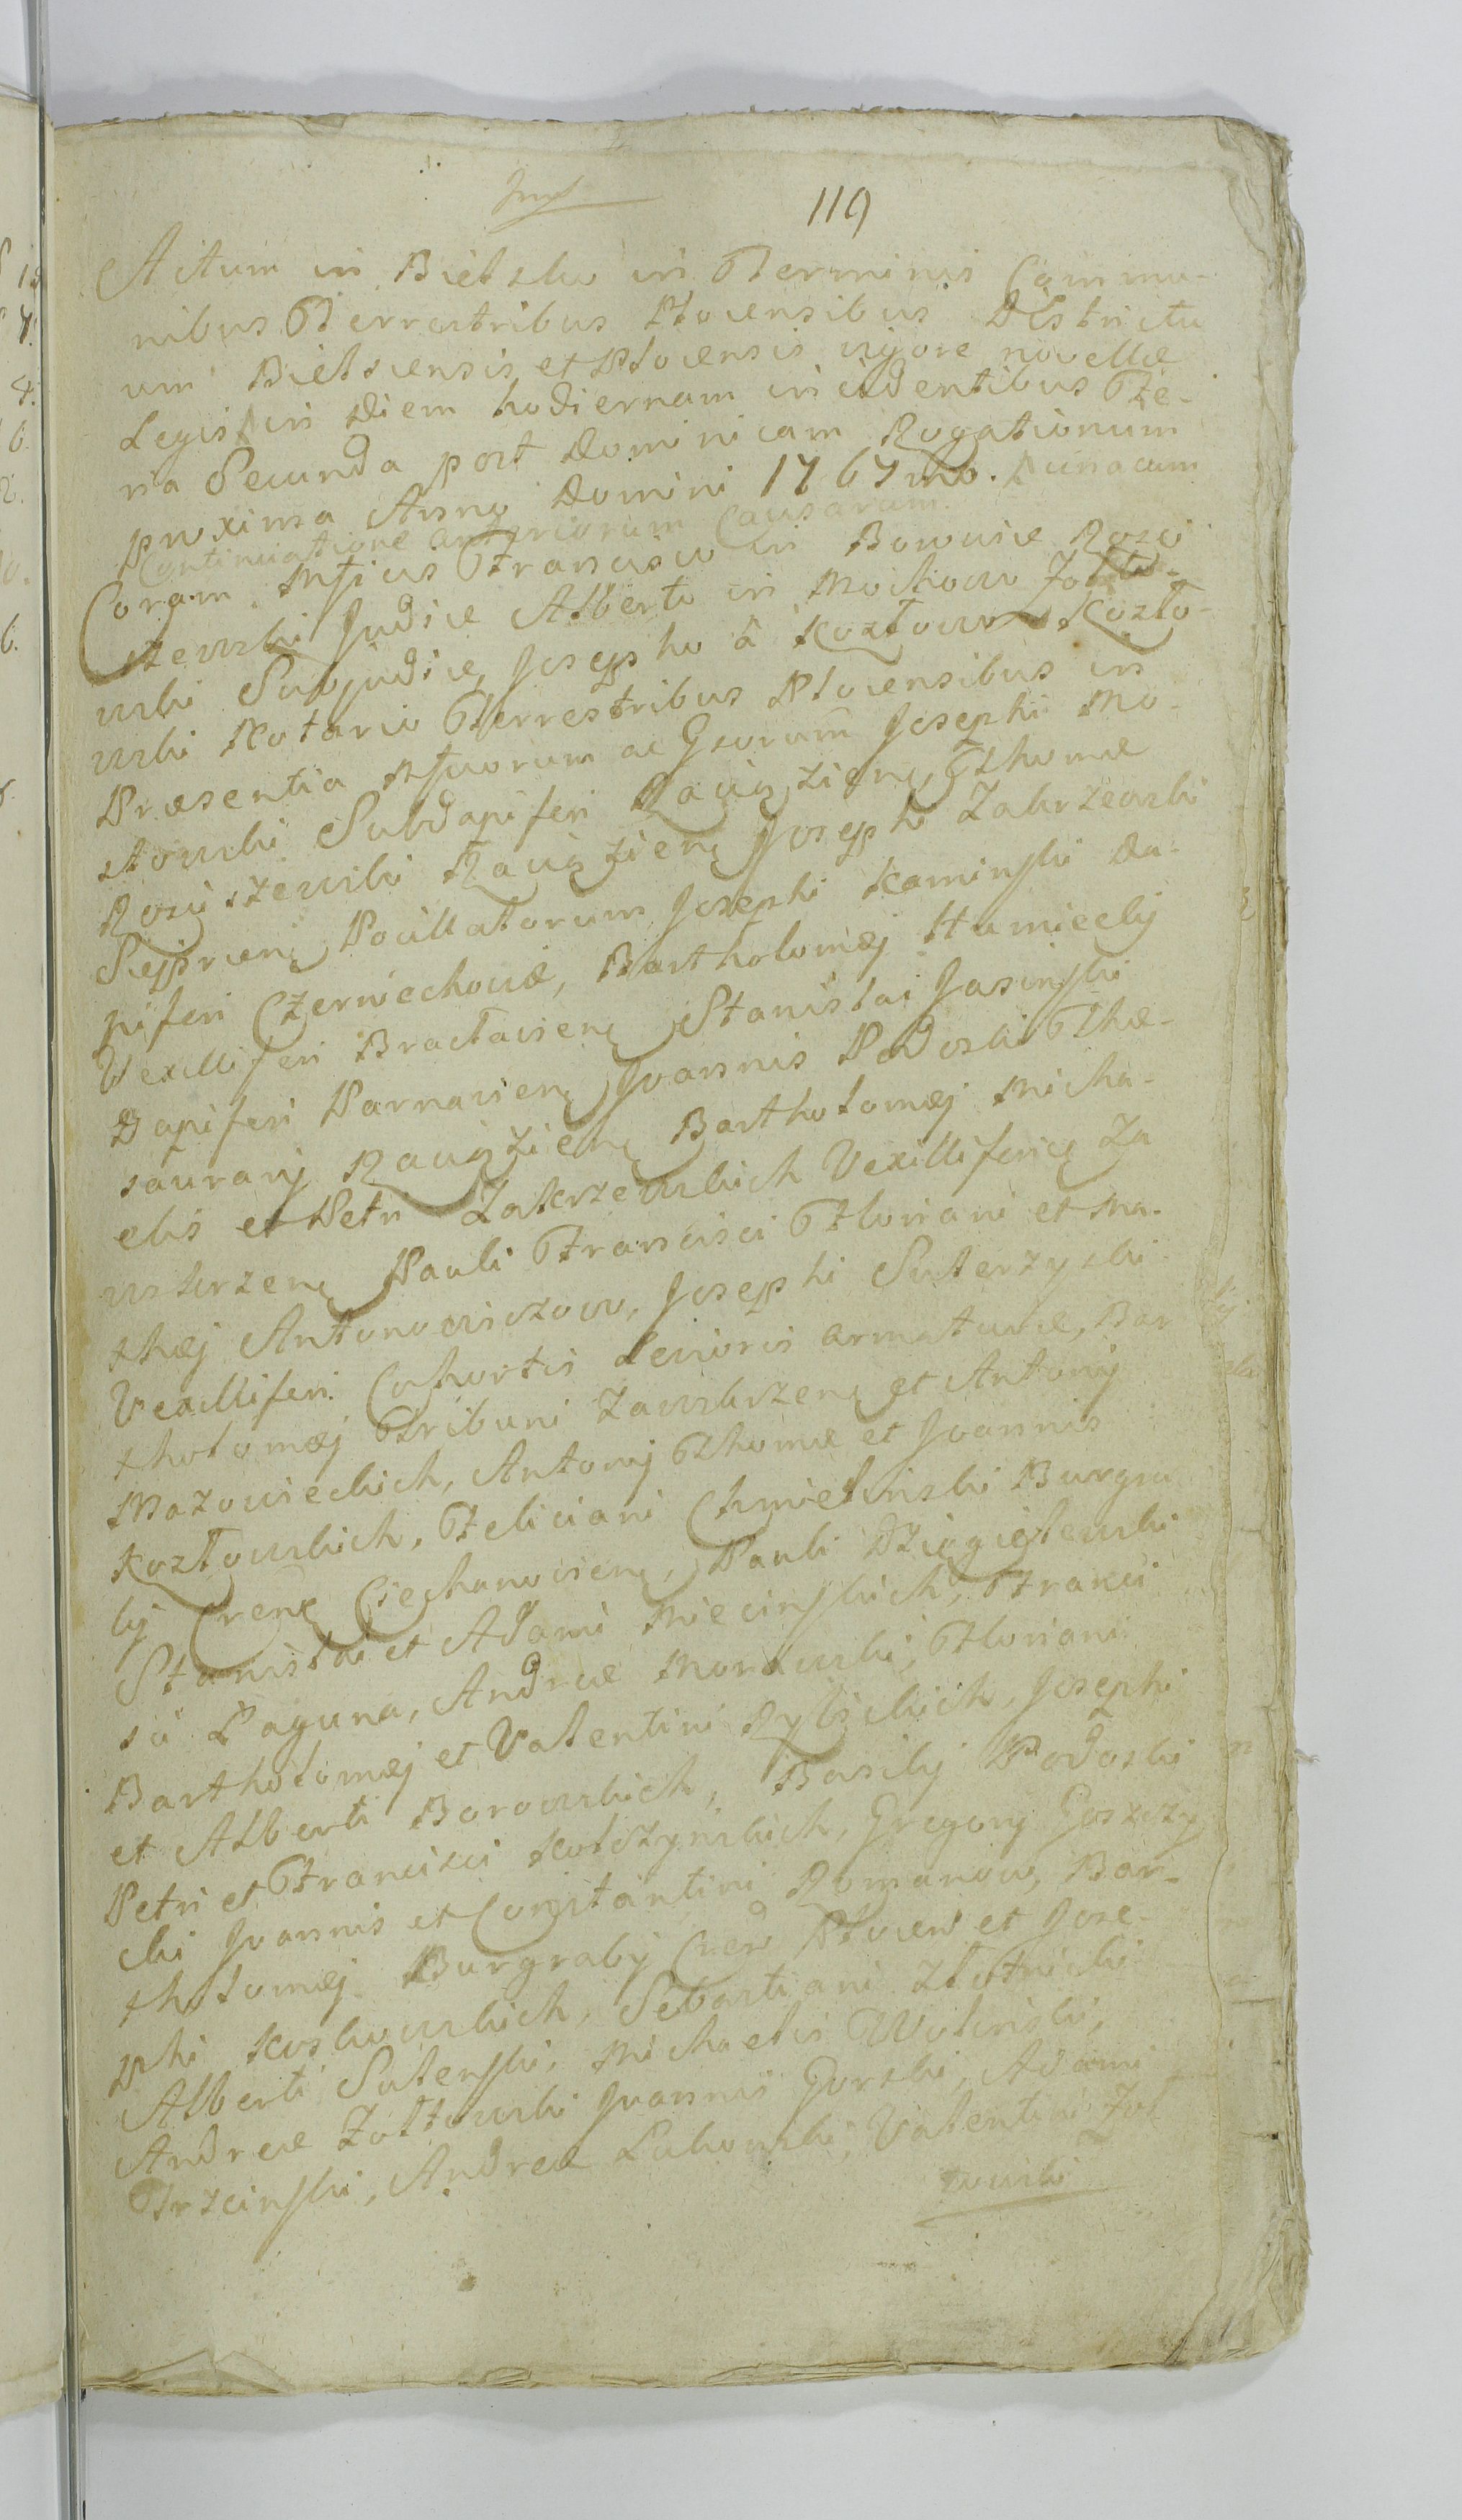 119
Actum in Bielsko in Terminis Commu-
nibus Terrestribus Plocensibus Districtu
um Bielscensis et Plocensis vigore novellæ
Legis in diem hodiernam incidentibus Fe-
ria Secunda post Dominicam Rogationum
proxima Anno Domini 1767mo. una cum
Continuatione anteriorum Causarum.
Coram Mficis Francisco in Borowice Rosci
szewski Judice Alberto in Mochowo Zołto-
wski Subjudice, Josepho à Kozłowo Kozło-
wski Notario Terrestribus Plocensibus in
Præsentia Mficorum ac Gsorum Josephi Mo-
stowski Subdapiferi Raciązien, Thomæ
Rosciszewski Raciązien Josephi Zakrzewski
Sieprcen Pocillatorum Josephi Kaminski Da-
piferi Czerniechoviæ, Bartholomæj Humiecki
Vexilliferi Braclavien Stanislai Jasinski
Dapiferi Parnavien Joannis Podoski The-
saurarij Raciązien Bartholomæj Micha-
elis et Petri Zakrzewskich Vexilliferic Za
wskrzen Pauli Francisci Floriani et Ma-
thæj Antonowiczow, Josephi Suterzyski
Vexilliferi Cohortis Levioris armaturæ, Bar
tholomæj Tribuni Zawskrzen et Antonij
Mazowieckich, Antonij Thomæ et Joannis
Kozłowskich, Feliciani Chmielinski Burgra
bij Cren Ciechanovien, Pauli Dziągielewski
Stanislai et Adami Miecinskich, Franci
sci Laguna, Andreæ Morawski, Floriani
Bartholomæj et Valentini Rybickich, Josephi
et Alberti Borowskich, Basilij Podoski
Petri et Francisci Kolczynskich, Gregorij Goszczy
cki Joannis et Constantini Romanow, Bar-
tholomæj Burgrabij Cren Plocen et Jose-
phi Koskowskich, Sebastiani Złotnicki
Alberti Sulenski, Michaelis Wolinski,
Andreæ Zołtowski Joannis Gorski, Adami
Trzcinski, Andreæ Lukowski, Valentini Zoł
towski